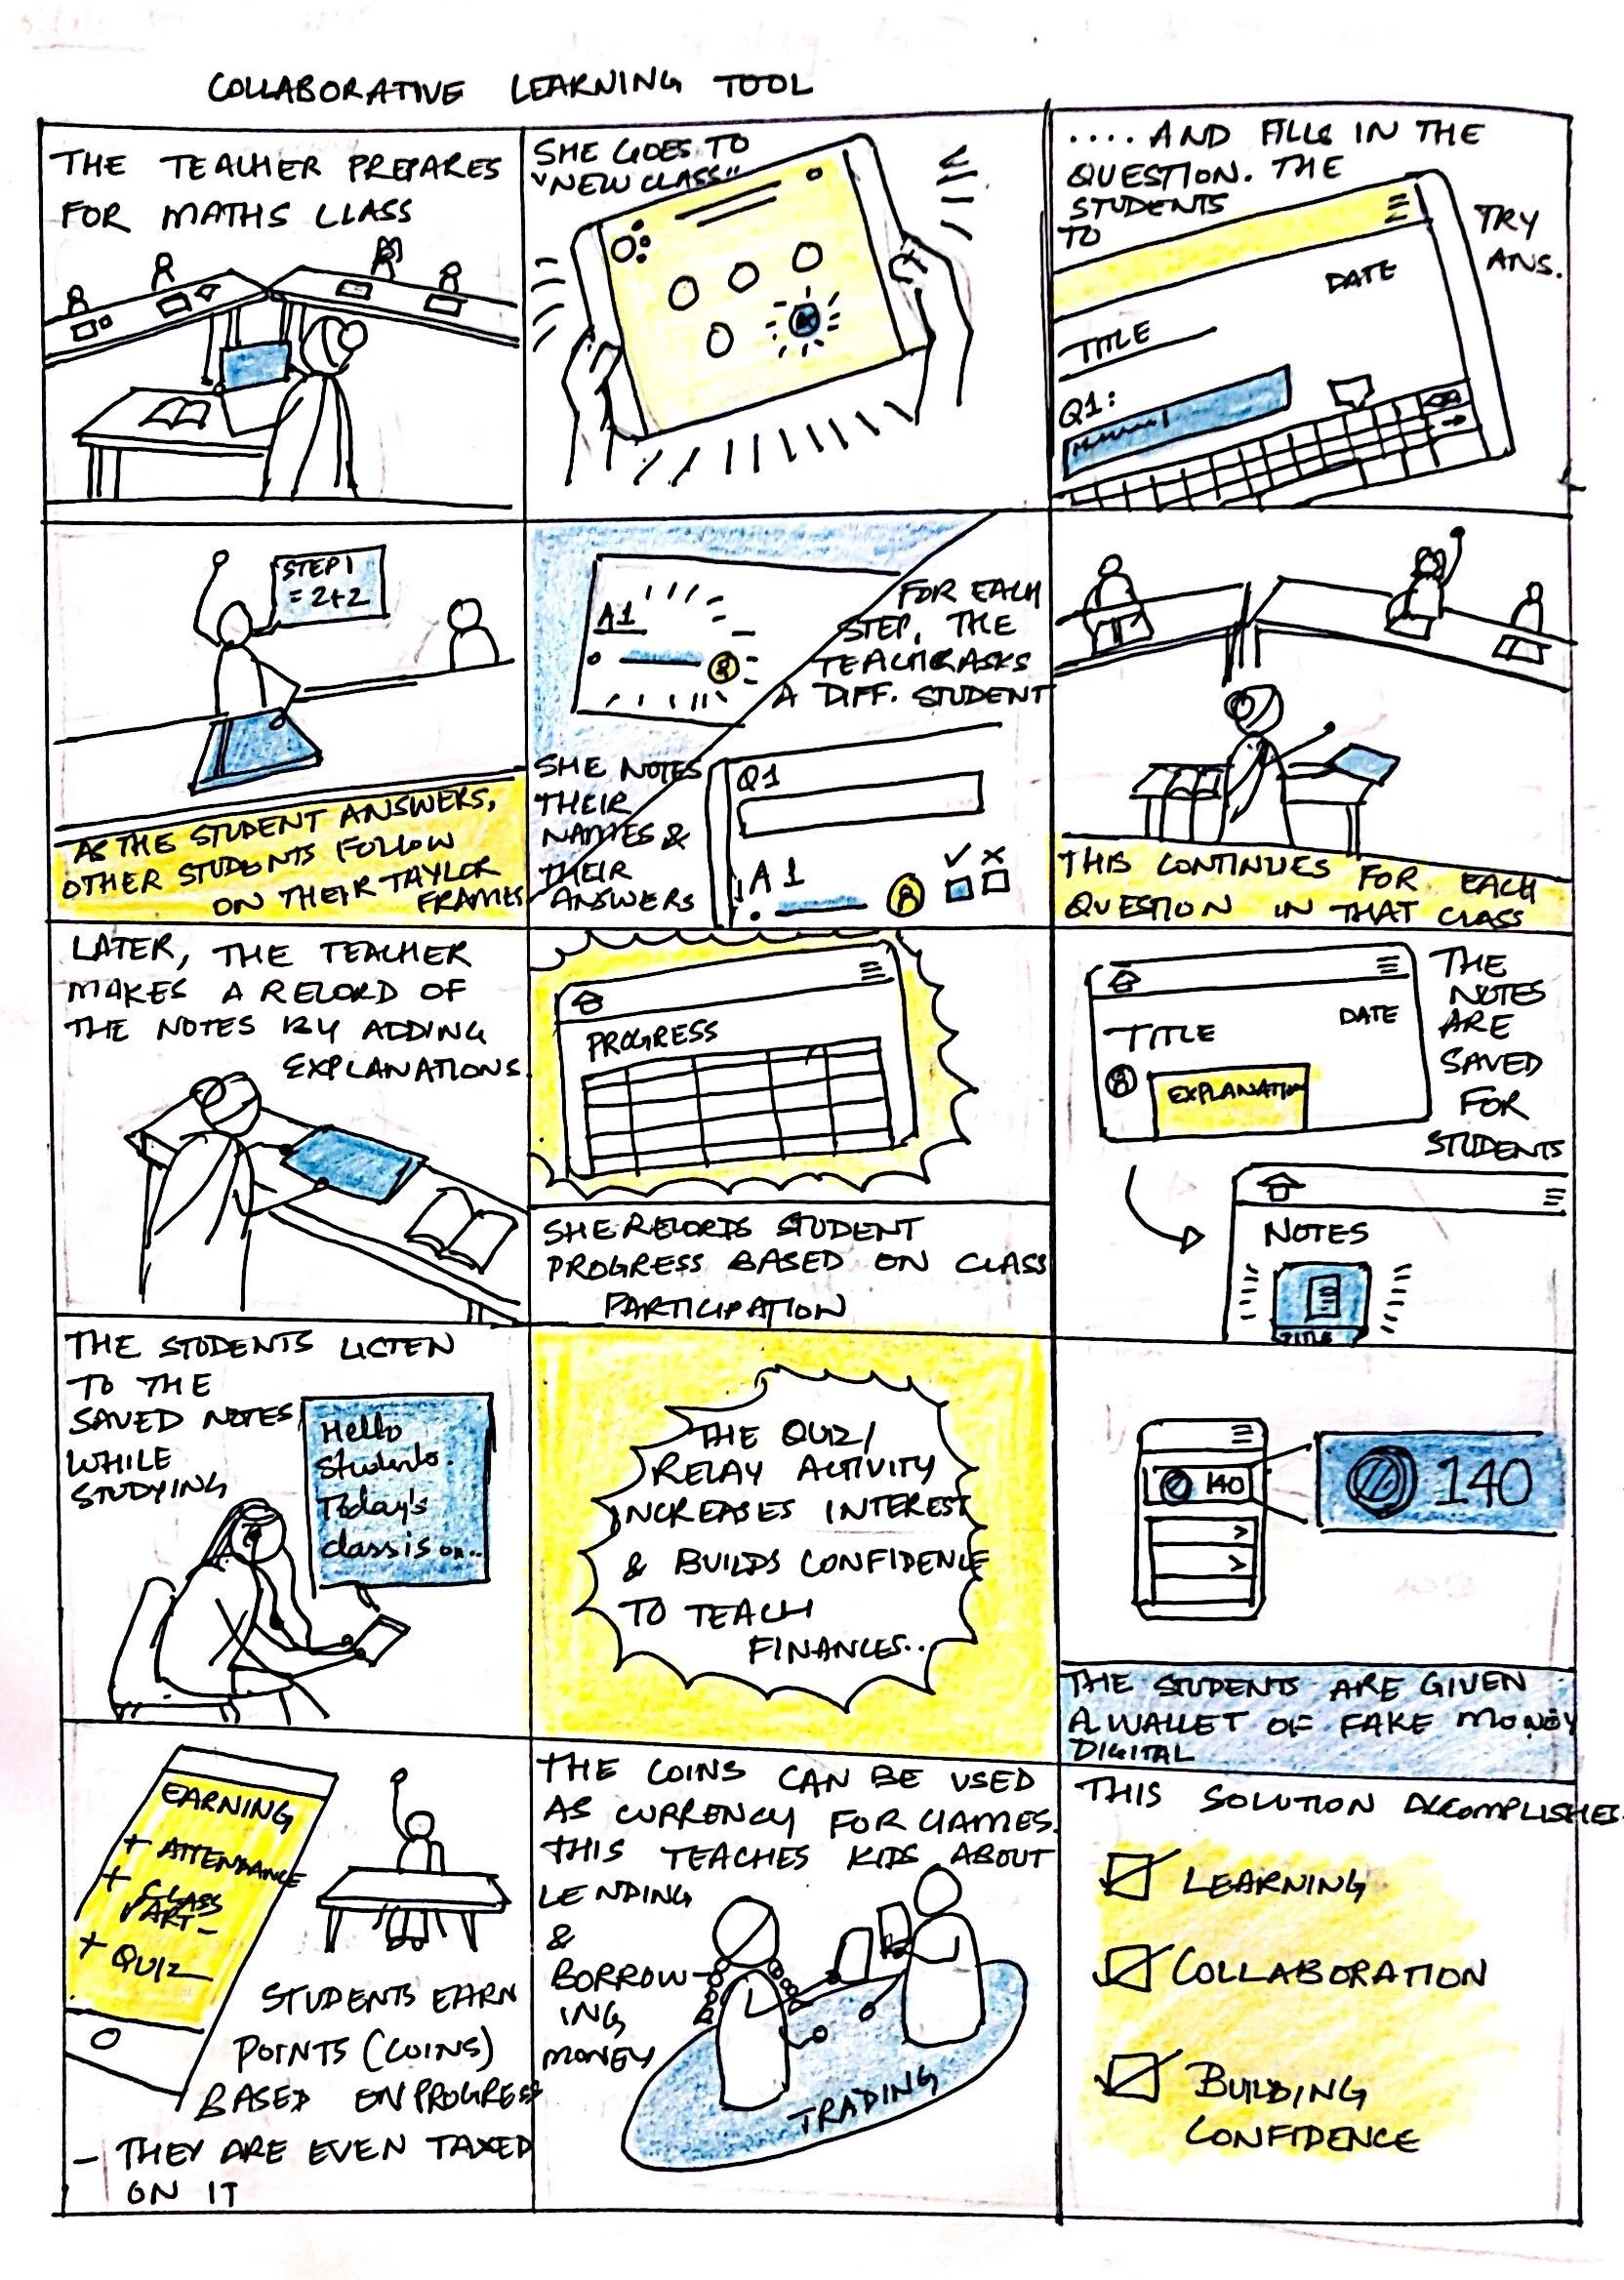 COLLABORATIVE LEARNING TOOL
THE TEACHER PREPARES
FOR MATHS CLASS
SHE GOES TO
"NEW CLASS"
.... AND FILLS IN THE
QUESTION. THE
STUDENTS
TO
TRY
ANS.
DATE
TITLE
Q1:
STEP 1
= 2+2
AS THE STUDENT ANSWERS,
OTHER STUDENTS FOLLOW
ON THEIR TAYLOR
FRAMES
A1
FOR EACH
STEP, THE
TEACHER ASKS
A DIFF. STUDENT
SHE NOTES
THEIR
NAMES &
THEIR
ANSWERS
Q1
A1
THIS CONTINUES FOR EACH
QUESTION IN THAT CLASS
LATER, THE TEACHER
MAKES A RECORD OF
THE NOTES BY ADDING
EXPLANATIONS.
PROGRESS
SHE RECORDS STUDENT
PROGRESS BASED ON CLASS
PARTICIPATION
TITLE
DATE
EXPLANATION
THE
NOTES
ARE
SAVED
FOR
STUDENTS
NOTES
TITLE
THE STUDENTS LISTEN
TO THE
SAVED NOTES
WHILE
STUDYING
Hello
Students.
Today's
class is on..
THE QUIZ/
RELAY ACTIVITY
INCREASES INTEREST
& BUILDS CONFIDENCE
TO TEACH
FINANCES..
140
140
THE STUDENTS ARE GIVEN
A WALLET OF FAKE MONEY
DIGITAL
EARNING
+ ATTENDANCE
+ CLASS
PART-
+ QUIZ
STUDENTS EARN
POINTS (COINS)
BASED ON PROGRESS
- THEY ARE EVEN TAXED
ON IT
THE COINS CAN BE USED
AS CURRENCY FOR GAMES.
THIS TEACHES KIDS ABOUT
LENDING
&
BORROW-
ING
MONEY
TRADING
THIS SOLUTION ACCOMPLISHES
LEARNING
COLLABORATION
BUILDING
CONFIDENCE